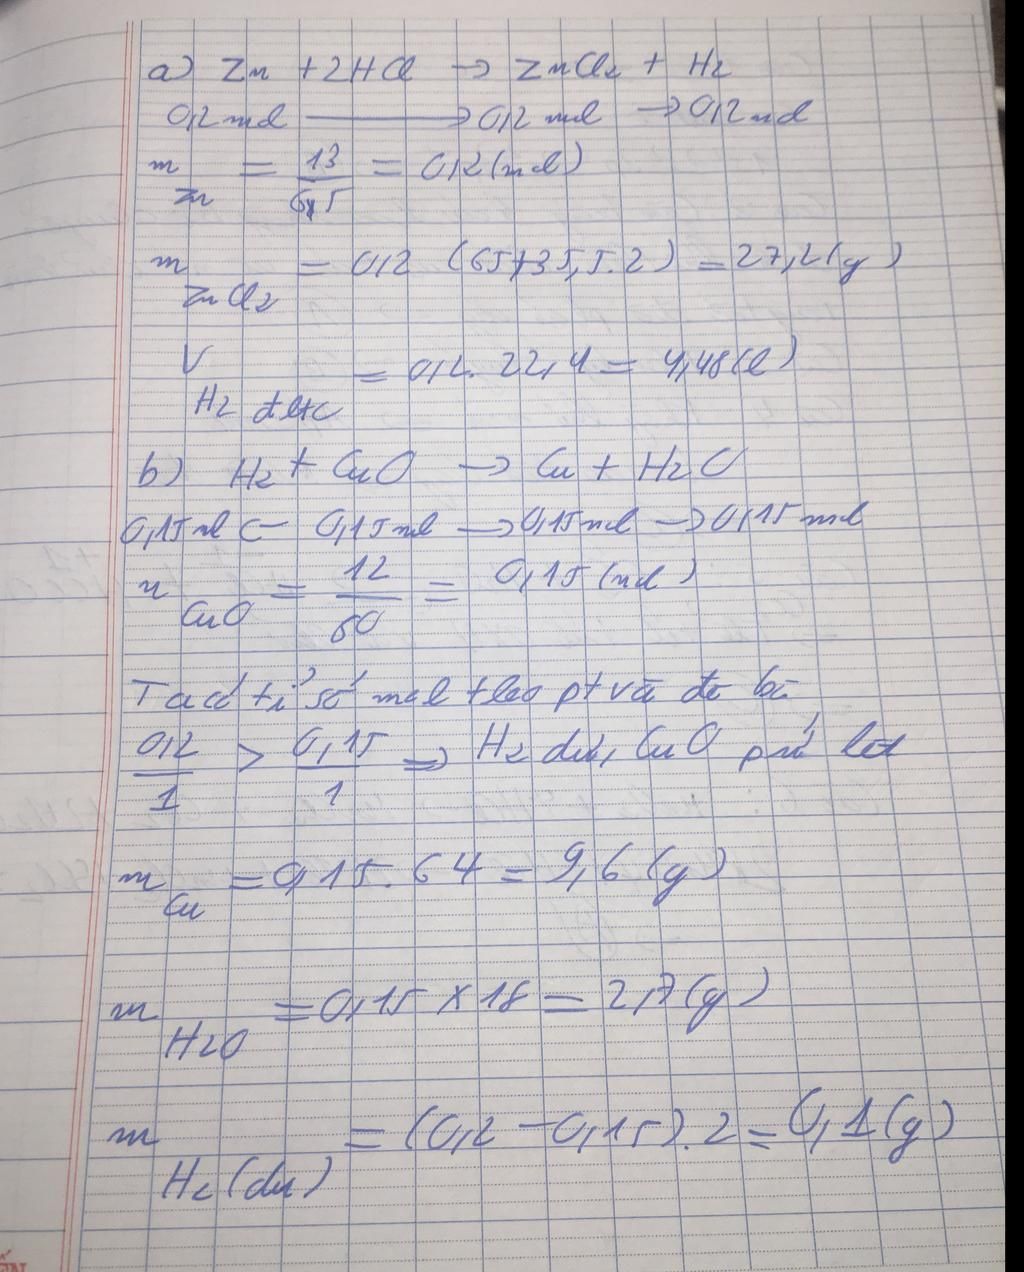 a) Zn + 2HCl → ZnCl2 + H2
0,2 mol → 0,2 mol → 0,2 mol
n Zn = 13/65 = 0,2 (mol)
m ZnCl2 = 0,2 (65+35,5.2) = 27,2 (g)
V H2 đktc = 0,2. 22,4 = 4,48 (l)
b) H2 + CuO → Cu + H2O
0,15 mol ← 0,15 mol → 0,15 mol → 0,15 mol
n CuO = 12/80 = 0,15 (mol)
Ta có tỉ số mol theo pt và đề bài
0,2/1 > 0,15/1 ⇒ H2 dư, CuO pứ hết
m Cu = 0,15. 64 = 9,6 (g)
m H2O = 0,15 × 18 = 2,7 (g)
m H2 (dư) = (0,2 - 0,15). 2 = 0,1 (g)